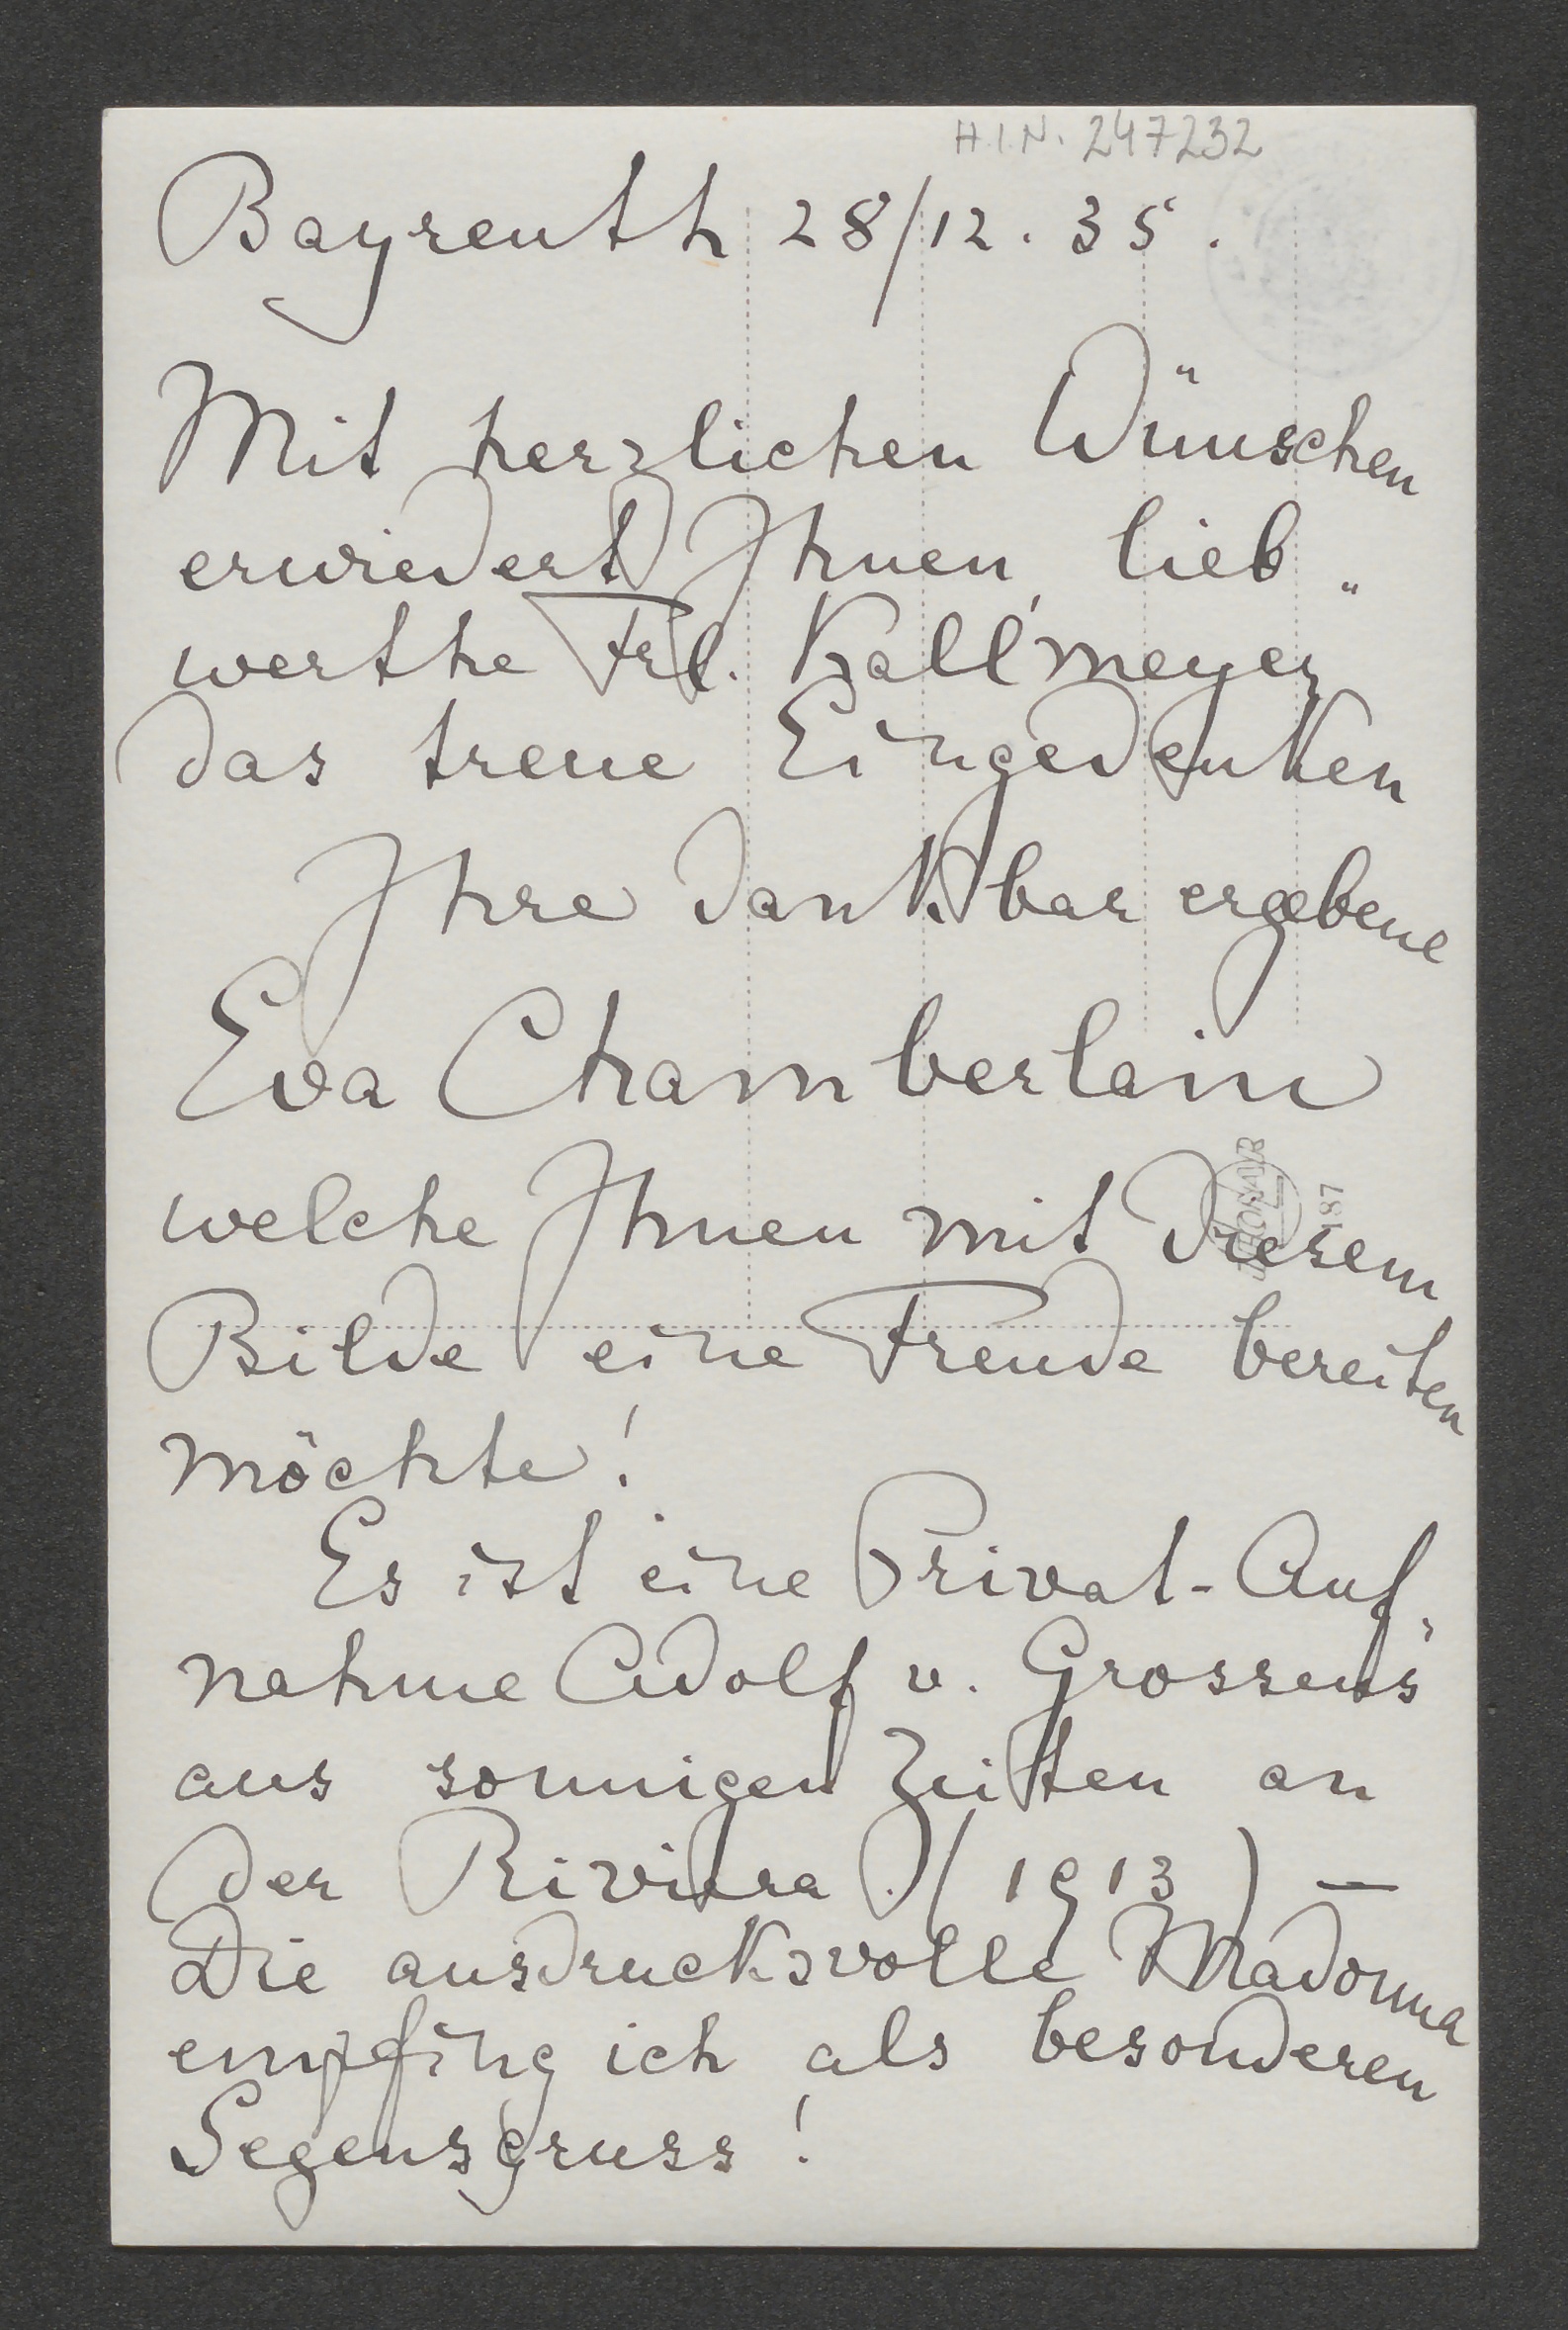 H.I.N. 247232
Bayreuth 28/12. 35.
Mit herzlichen Wünschen
erwiedert Ihnen, lieb„
werthe Frl. Kallmeyer
das treue Eingedenken
Ihre dankbar ergebene
Eva Chamberlain
welche Ihnen mit diesem
Bilde eine Freude bereiten
möchte!
Es ist eine Privat-Auf„
nahme Adolf v. Grossens
aus sonnigen Zeiten an
der Riviera. (1913) —
Die ausdrucksvolle Madonna
empfing ich als besonderen
Segensgruss!
LEONAR
187